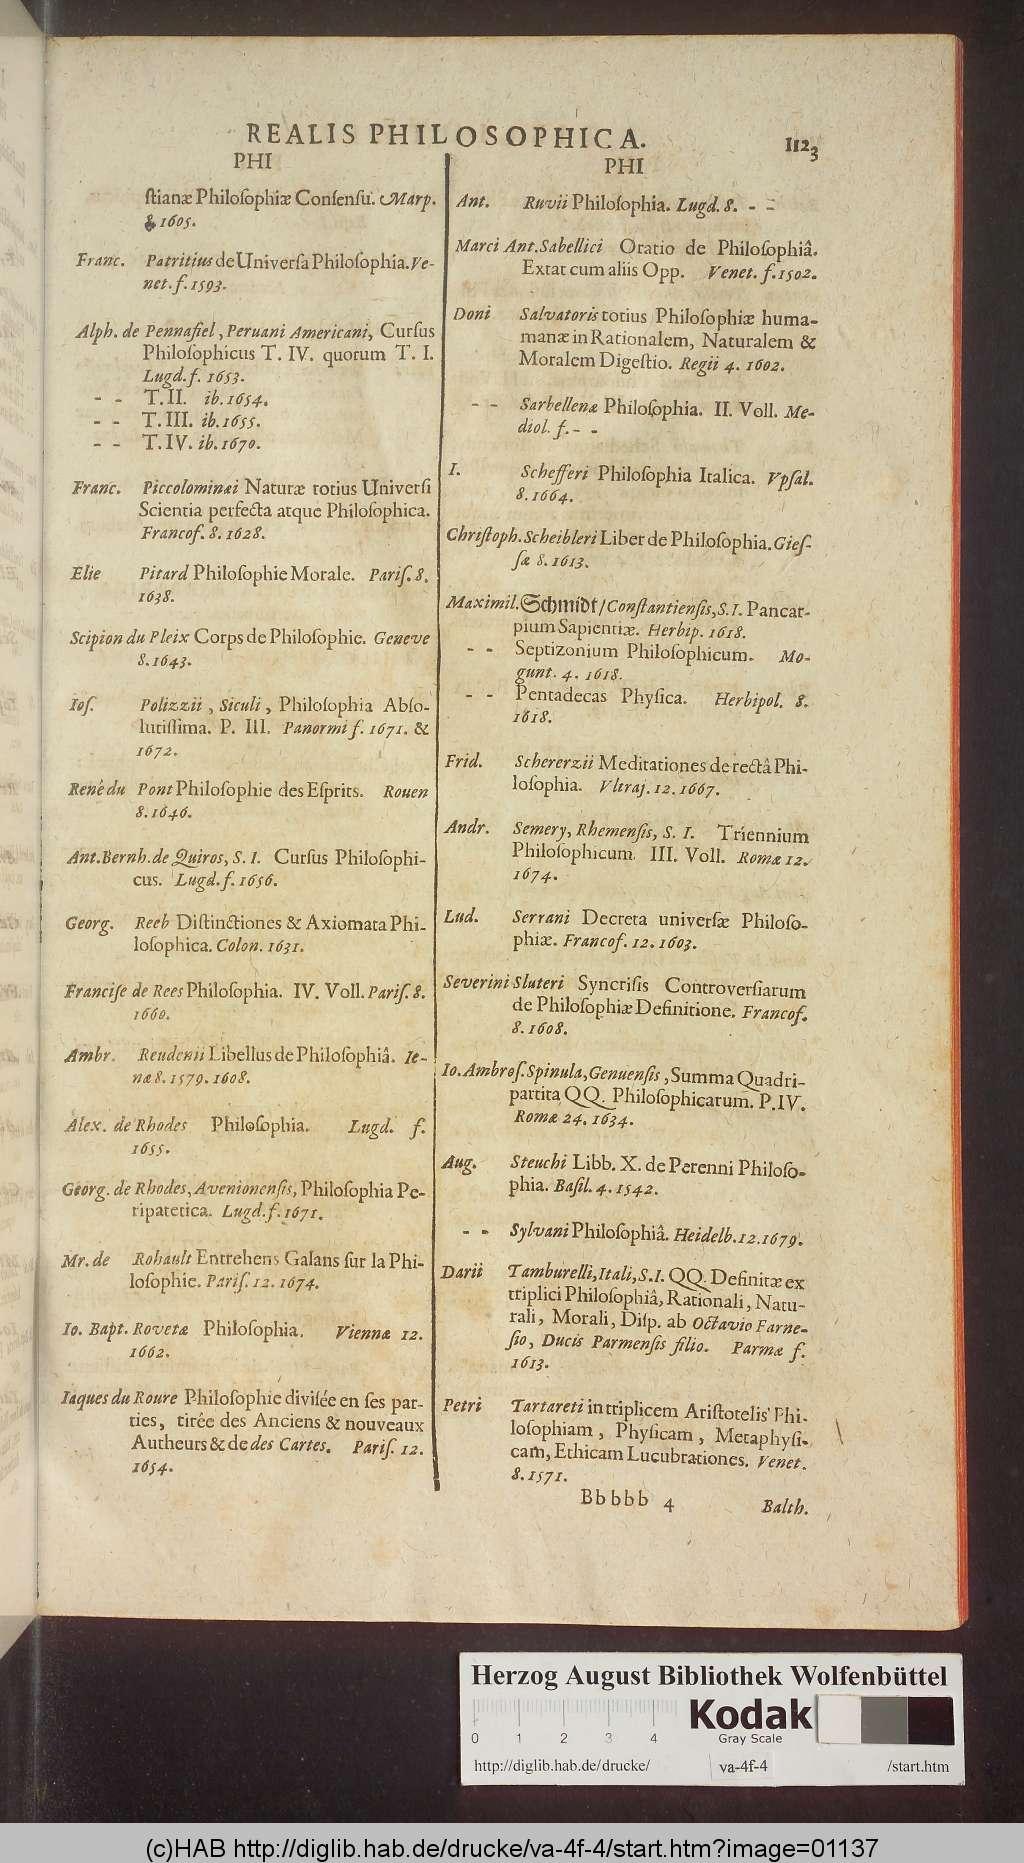 REALIS PHILOSOPHICA. 1123
PHI
ſtianæ Philoſophiæ Conſenſu. Marp.
8. 1605.
Franc. Patritius de Univerſa Philoſophia. Ve-
net. f. 1593.
Alph. de Pennafiel, Peruani Americani, Curſus
Philoſophicus T. IV. quorum T. I.
Lugd. f. 1653.
- - T. II. ib. 1654.
- - T. III. ib. 1655.
- - T. IV. ib. 1670.
Franc. Piccolominæi Naturæ totius Univerſi
Scientia perfecta atque Philoſophica.
Francof. 8. 1628.
Elie Pitard Philoſophie Morale. Pariſ. 8.
1638.
Scipion du Pleix Corps de Philoſophie. Geneve
8. 1643.
Ioſ. Polizzii, Siculi, Philoſophia Abſo-
lutiſſima. P. III. Panormi f. 1671. &
1672.
René du Pont Philoſophie des Eſprits. Rouen
8. 1646.
Ant. Bernh. de Quiros, S. I. Curſus Philoſophi-
cus. Lugd. f. 1656.
Georg. Reeb Diſtinctiones & Axiomata Phi-
loſophica. Colon. 1631.
Franciſe de Rees Philoſophia. IV. Voll. Pariſ. 8.
1660.
Ambr. Reudenii Libellus de Philoſophiâ. Ie-
næ 8. 1579. 1608.
Alex. de Rhodes Philoſophia. Lugd. f.
1655.
Georg. de Rhodes, Avenionenſis, Philoſophia Pe-
ripatetica. Lugd. f. 1671.
Mr. de Rohault Entrehens Galans ſur la Phi-
loſophie. Pariſ. 12. 1674.
Io. Bapt. Rovetæ Philoſophia. Viennæ 12.
1662.
Iaques du Roure Philoſophie diviſée en ſes par-
ties, tirée des Anciens & nouveaux
Autheurs & de des Cartes. Pariſ. 12.
1654.
PHI
Ant. Ruvii Philoſophia. Lugd. 8. - -
Marci Ant. Sabellici Oratio de Philoſophiâ.
Extat cum aliis Opp. Venet. f. 1502.
Doni Salvatoris totius Philoſophiæ huma-
manæ in Rationalem, Naturalem &
Moralem Digeſtio. Regii 4. 1602.
- - Sarbellenæ Philoſophia. II. Voll. Me-
diol. f. - -
I. Schefferi Philoſophia Italica. Vpſal.
8. 1664.
Chriſtoph. Scheibleri Liber de Philoſophia. Gieſ-
ſæ 8. 1613.
Maximil. Schmidt / Conſtantienſis, S. I. Pancar-
pium Sapientiæ. Herbip. 1618.
- - Septizonium Philoſophicum. Mo-
gunt. 4. 1618.
- - Pentadecas Phyſica. Herbipol. 8.
1618.
Frid. Schererzii Meditationes de rectâ Phi-
loſophia. Vltraj. 12. 1667.
Andr. Semery, Rhemenſis, S. I. Triennium
Philoſophicum. III. Voll. Romæ 12.
1674.
Lud. Serrani Decreta univerſæ Philoſo-
phiæ. Francof. 12. 1603.
Severini Sluteri Syncriſis Controverſiarum
de Philoſophiæ Definitione. Francof.
8. 1608.
Io. Ambroſ. Spinula, Genuenſis, Summa Quadri-
partita QQ. Philoſophicarum. P. IV.
Romæ 24. 1634.
Aug. Steuchi Libb. X. de Perenni Philoſo-
phia. Baſil. 4. 1542.
- - Sylvani Philoſophiâ. Heidelb. 12. 1679.
Darii Tamburelli, Itali, S. I. QQ. Definitæ ex
triplici Philoſophiâ, Rationali, Natu-
rali, Morali, Diſp. ab Octavio Farne-
ſio, Ducis Parmenſis filio. Parmæ f.
1613.
Petri Tartareti in triplicem Ariſtotelis Phi-
loſophiam, Phyſicam, Metaphyſi-
cam, Ethicam Lucubrationes. Venet.
8. 1571.
Bbbbb 4 Balth.
Herzog August Bibliothek Wolfenbüttel
0 1 2 3 4
Kodak
Gray Scale
http://diglib.hab.de/drucke/ va-4f-4 /start.htm
(c)HAB http://diglib.hab.de/drucke/va-4f-4/start.htm?image=01137